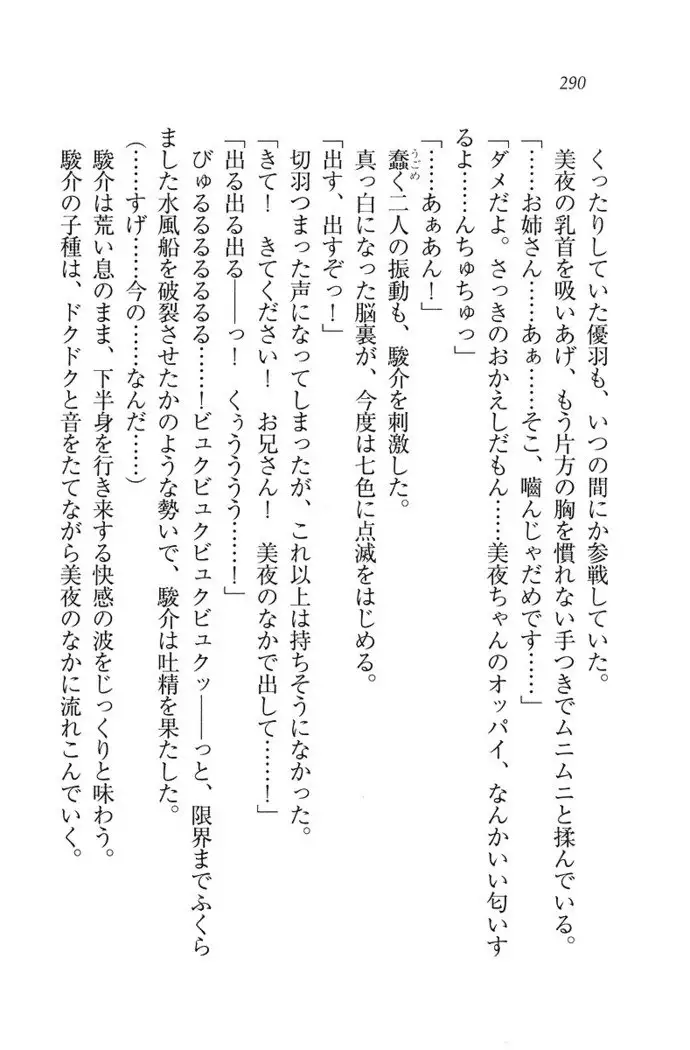 290
くったりしていた優羽も、いつの間にか参戦していた。
美夜の乳首を吸いあげ、もう片方の胸を慣れない手つきでムニムニと揉んでいる。
「……お姉さん……あぁ……そこ、嚙んじゃだめです……」
「ダメだよ。さっきのおかえしだもん……美夜ちゃんのオッパイ、なんかいい匂いす
るよ……んちゅちゅっ」
「……あぁあん！」
蠢く二人の振動も、駿介を刺激した。
うごめ
真っ白になった脳裏が、今度は七色に点滅をはじめる。
「出す、出すぞっ！」
切羽つまった声になってしまったが、これ以上は持ちそうになかった。
「きて！　きてください！　お兄さん！　美夜のなかで出して……！」
「出る出る出る――っ！　くぅうううう……！」
びゅるるるるるるる……！ビュクビュクビュクビュクッ――っと、限界までふくら
ました水風船を破裂させたかのような勢いで、駿介は吐精を果たした。
（……すげ……今の……なんだ……）
駿介は荒い息のまま、下半身を行き来する快感の波をじっくりと味わう。
駿介の子種は、ドクドクと音をたてながら美夜のなかに流れこんでいく。